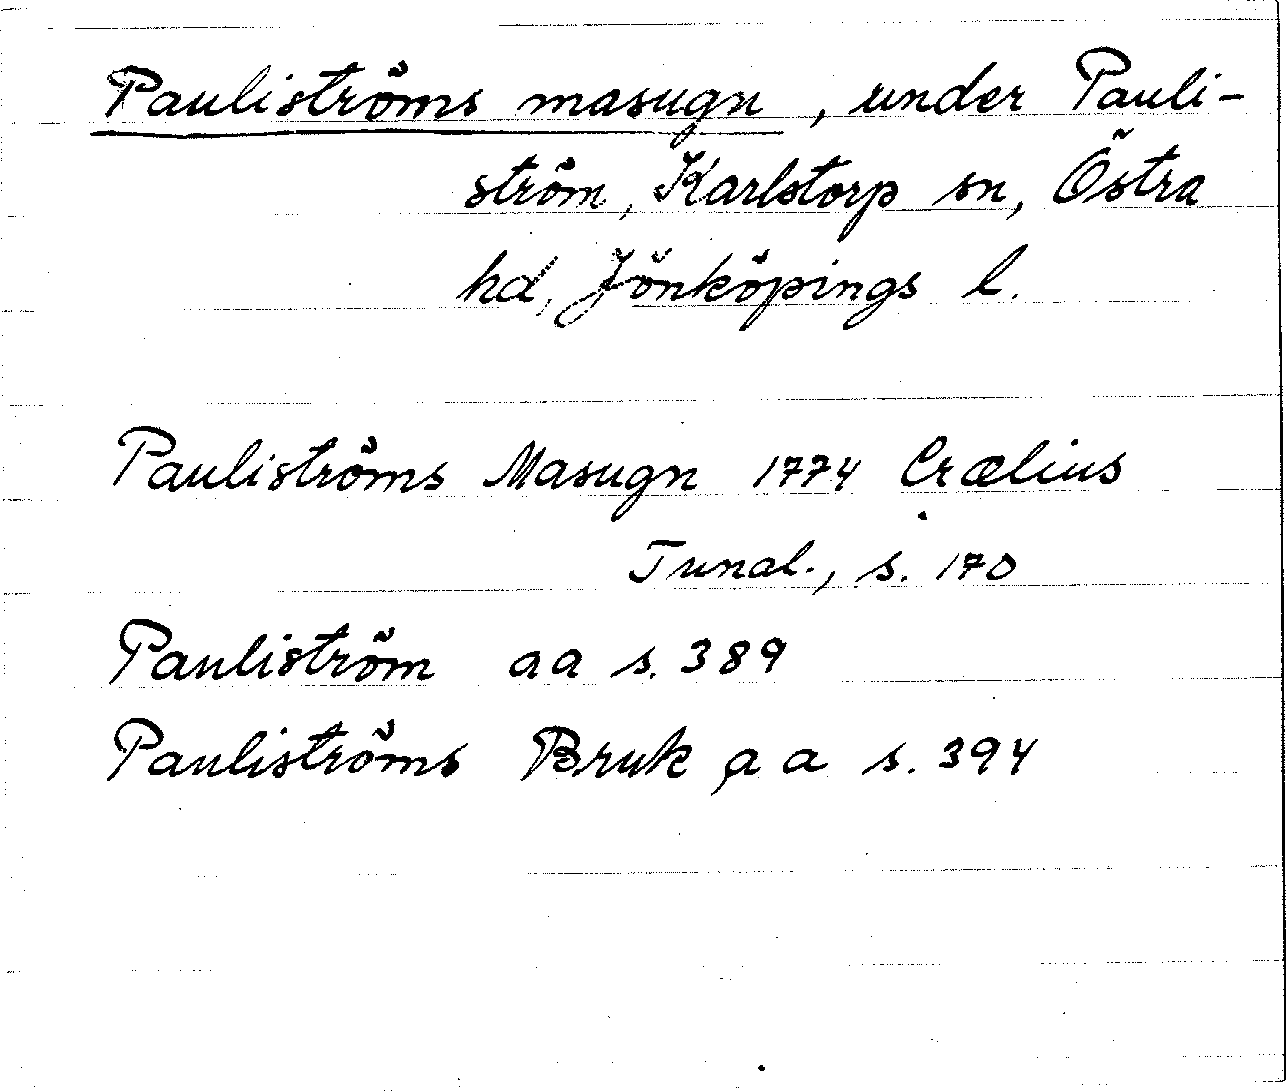 Pauliströms masugn, under Pauli-
ström, Karlstorp sn, Östra
hd, Jönköpings l.
Pauliströms Masugn 1774 Crælius
Tunal., s. 170
Pauliström aa s. 389
Pauliströms Bruk aa s. 394